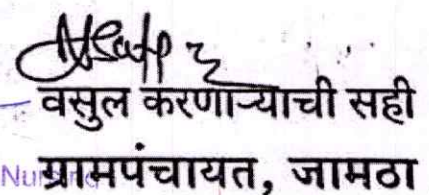 वसुल करणाऱ्याची सही
ग्रामपंचायत, जामठा